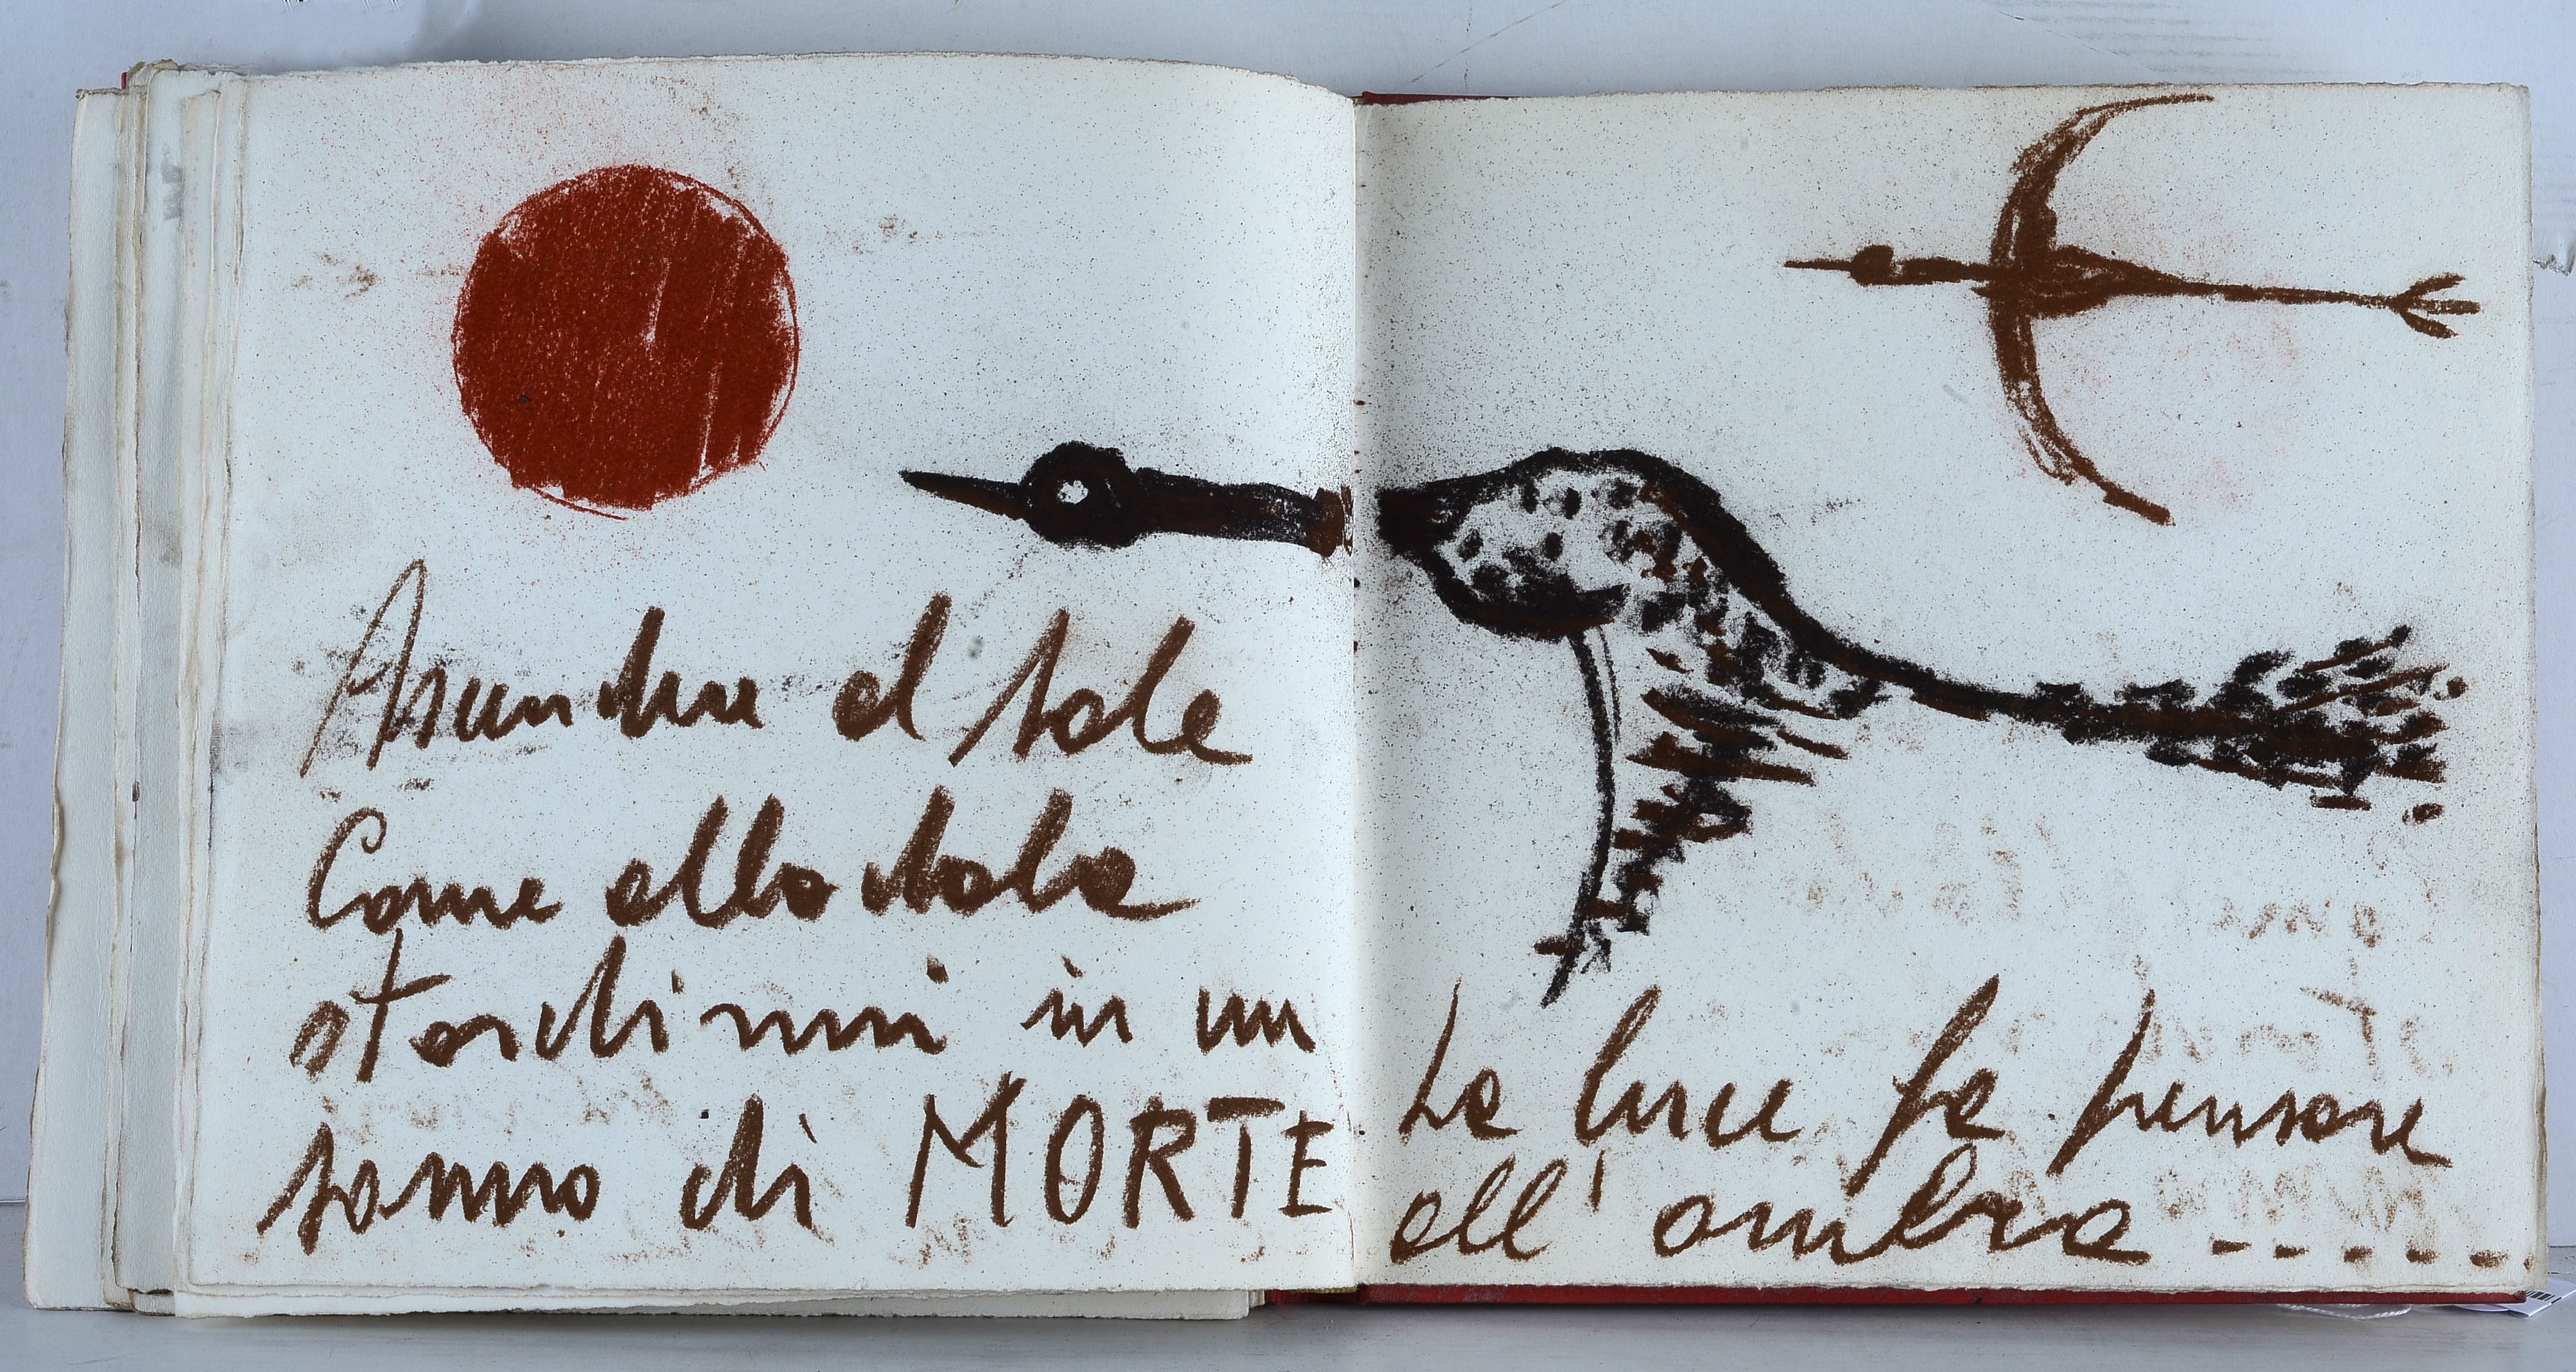 Ascendere al sole
Come allodola
stordirmi in un
sonno di MORTE
La luce fa pensare
all'ombra - - - - - -